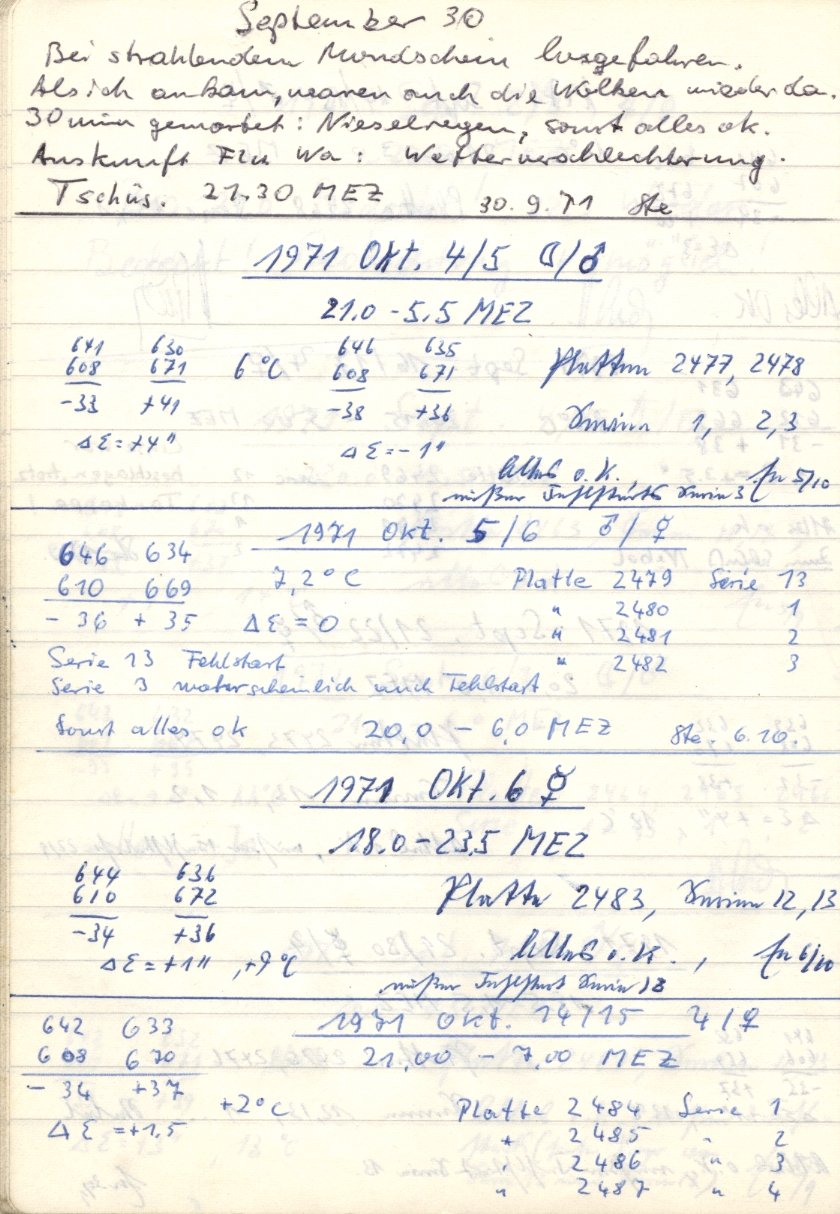 September 30
Bei strahlendem Mondschein losgefahren.
Als ich ankam, waren auch die Wolken wieder da.
30 min gewartet: Nieselregen, sonst alles ok.
Auskunft Flu Wa: Wetterverschlechterung.
Tschüs. 21.30 MEZ 30.9.71 Ste
1971 OKT. 4/5 ☾/♂
21.0 - 5.5 MEZ
641 630 646 635
608 671 6°C 608 671 Platten 2477, 2478
-33 +41 -38 +36 Serien 1, 2, 3
ΔƐ = +4" ΔƐ = -1"
Alles o.K.,
außer Fehlstart Serie 3 5/10
1971 Okt. 5/6 ♂/☿
646 634
610 669 7,2°C Platte 2479 Serie 13
- 36 + 35 ΔƐ = 0 " 2480 1
" 2481 2
Serie 13 Fehlstart " 2482 3
Serie 3 wahrscheinlich auch Fehlstart
Sonst alles ok 20,0 - 6,0 MEZ Ste. 6.10.
1971 OKT. 6 ☿
18.0 - 23.5 MEZ
644 636
610 672 Platte 2483, Serien 12, 13
-34 +36
ΔƐ = +1", +9°C Alles o.K., 6/10
außer Fehlstart Serie 13
1971 Okt. 14/15 ♃/♀
642 633
608 670 21,00 - 7,00 MEZ
- 34 +37
ΔƐ = +1,5 +2°C Platte 2484 Serie 1
" 2485 " 2
" 2486 " 3
" 2487 " 4